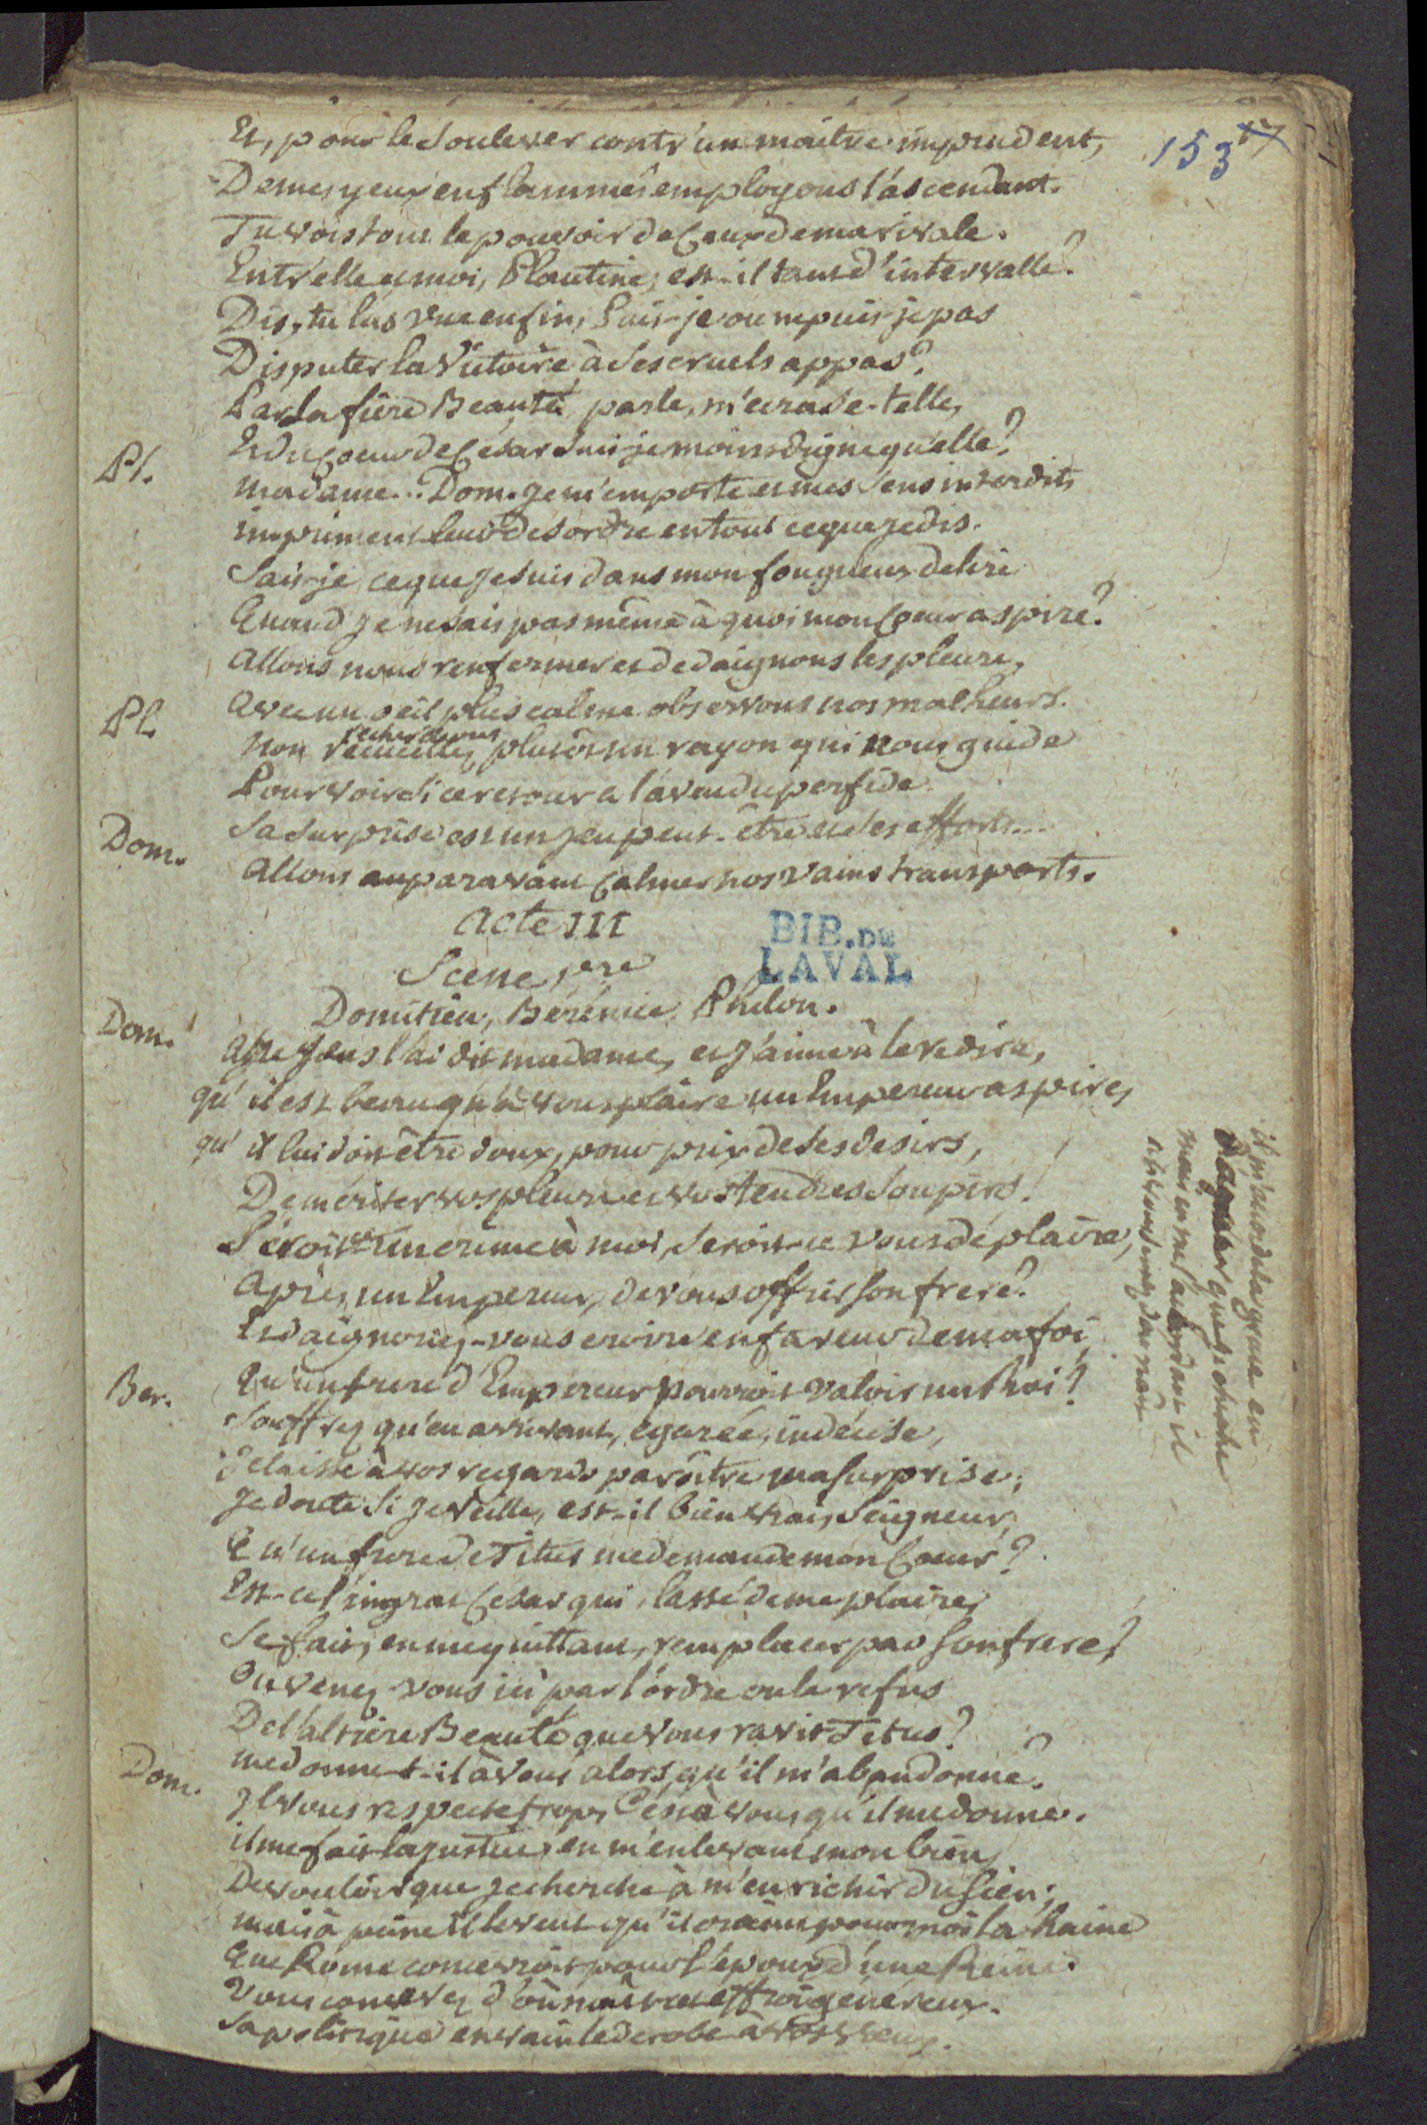 153
17
Et, pour le soulever contr'un maitre imprudent,
De mes yeux enflammés employons l'ascendant.
Tu vois tout le pouvoir de ceux de ma rivale.
Entr'elle et moi, Plautine, est-il tant d'intervalle?
Dis, tu l'as vue enfin, Puis-je ou ne puis-je pas
Disputer la Victoire à ses cruels appas?
Par sa fiere Beauté, parle, m'ecrase-t'elle,
Et du Coeur de César suis je moins digne qu'elle?
Pl.
madame... Dom. je m'emporte et mes sens interdits
impriment leur desordre en tout ce que je dis.
Sais-je ce que je suis dans mon fougueux delire
Quand je ne sais pas même à quoi mon Coeur aspire?
allons nous renfermer et dedaignons les pleurs,
avec un oeil plus calme observons nos malheurs.
Pl.
recherchons
non recueillez plutôt un rayon qui nous guide
Pour voir si ce retour a l'aveu du perfide
Sa surprise est un jeu peut-être et ses efforts...
Dom.
allons auparavant calmer nos vains transports.
acte III
Scene 1ere
BIB. DE
LAVAL
Domitien, Bérénice, Philon.
Dom.
je vous l'ai dit madame, et j'aime à le redire,
qu'il est beau qu'à vous plaire un Empereur aspire,
qu'il lui doit être doux, pour prix de ses desirs,
De mériter vos pleurs et vos tendres soupirs!
Seroit-ce un crime à moi, seroit-ce vous déplaire,
Après un Empereur, de vous offrir son frere?
Et daigneriez-vous croire en faveur de ma foi
Qu'un frere d'Empereur pourroit valoir un Roi?
Ber.
Souffrez qu'en arrivant, égarée, indécise,
je laisse à vos regards paroître ma surprise;
je doute si je veille, est-il bien vrai, Seigneur,
Qu'un frere de Titus me demande mon Coeur?
Est-ce l'ingrat Cesar qui, lassé de me plaire,
Se fait, en me quittant, remplacer par son frere?
Ou venez-vous ici par l'ordre ou le refus
De l'altiere Beauté que vous ravit Titus?
me donne-t-il à vous alors qu'il m'abandonne?
Dom.
Il vous respecte trop, C'est à vous qu'il me donne.
il me fait la justice, en m'enlevant mon bien,
De vouloir que je cherche à m'enrichir du sien;
mais à peine il le veut qu'il craint pour moi la haine
Que Rome concevroit pour l'époux d'une Reine.
Vous concevez d'où nait cet effroi généreux.
Sa politique en vain le derobe à vos yeux.
il m'accorde la grace en
que je cherche
mais en me l'accordant il